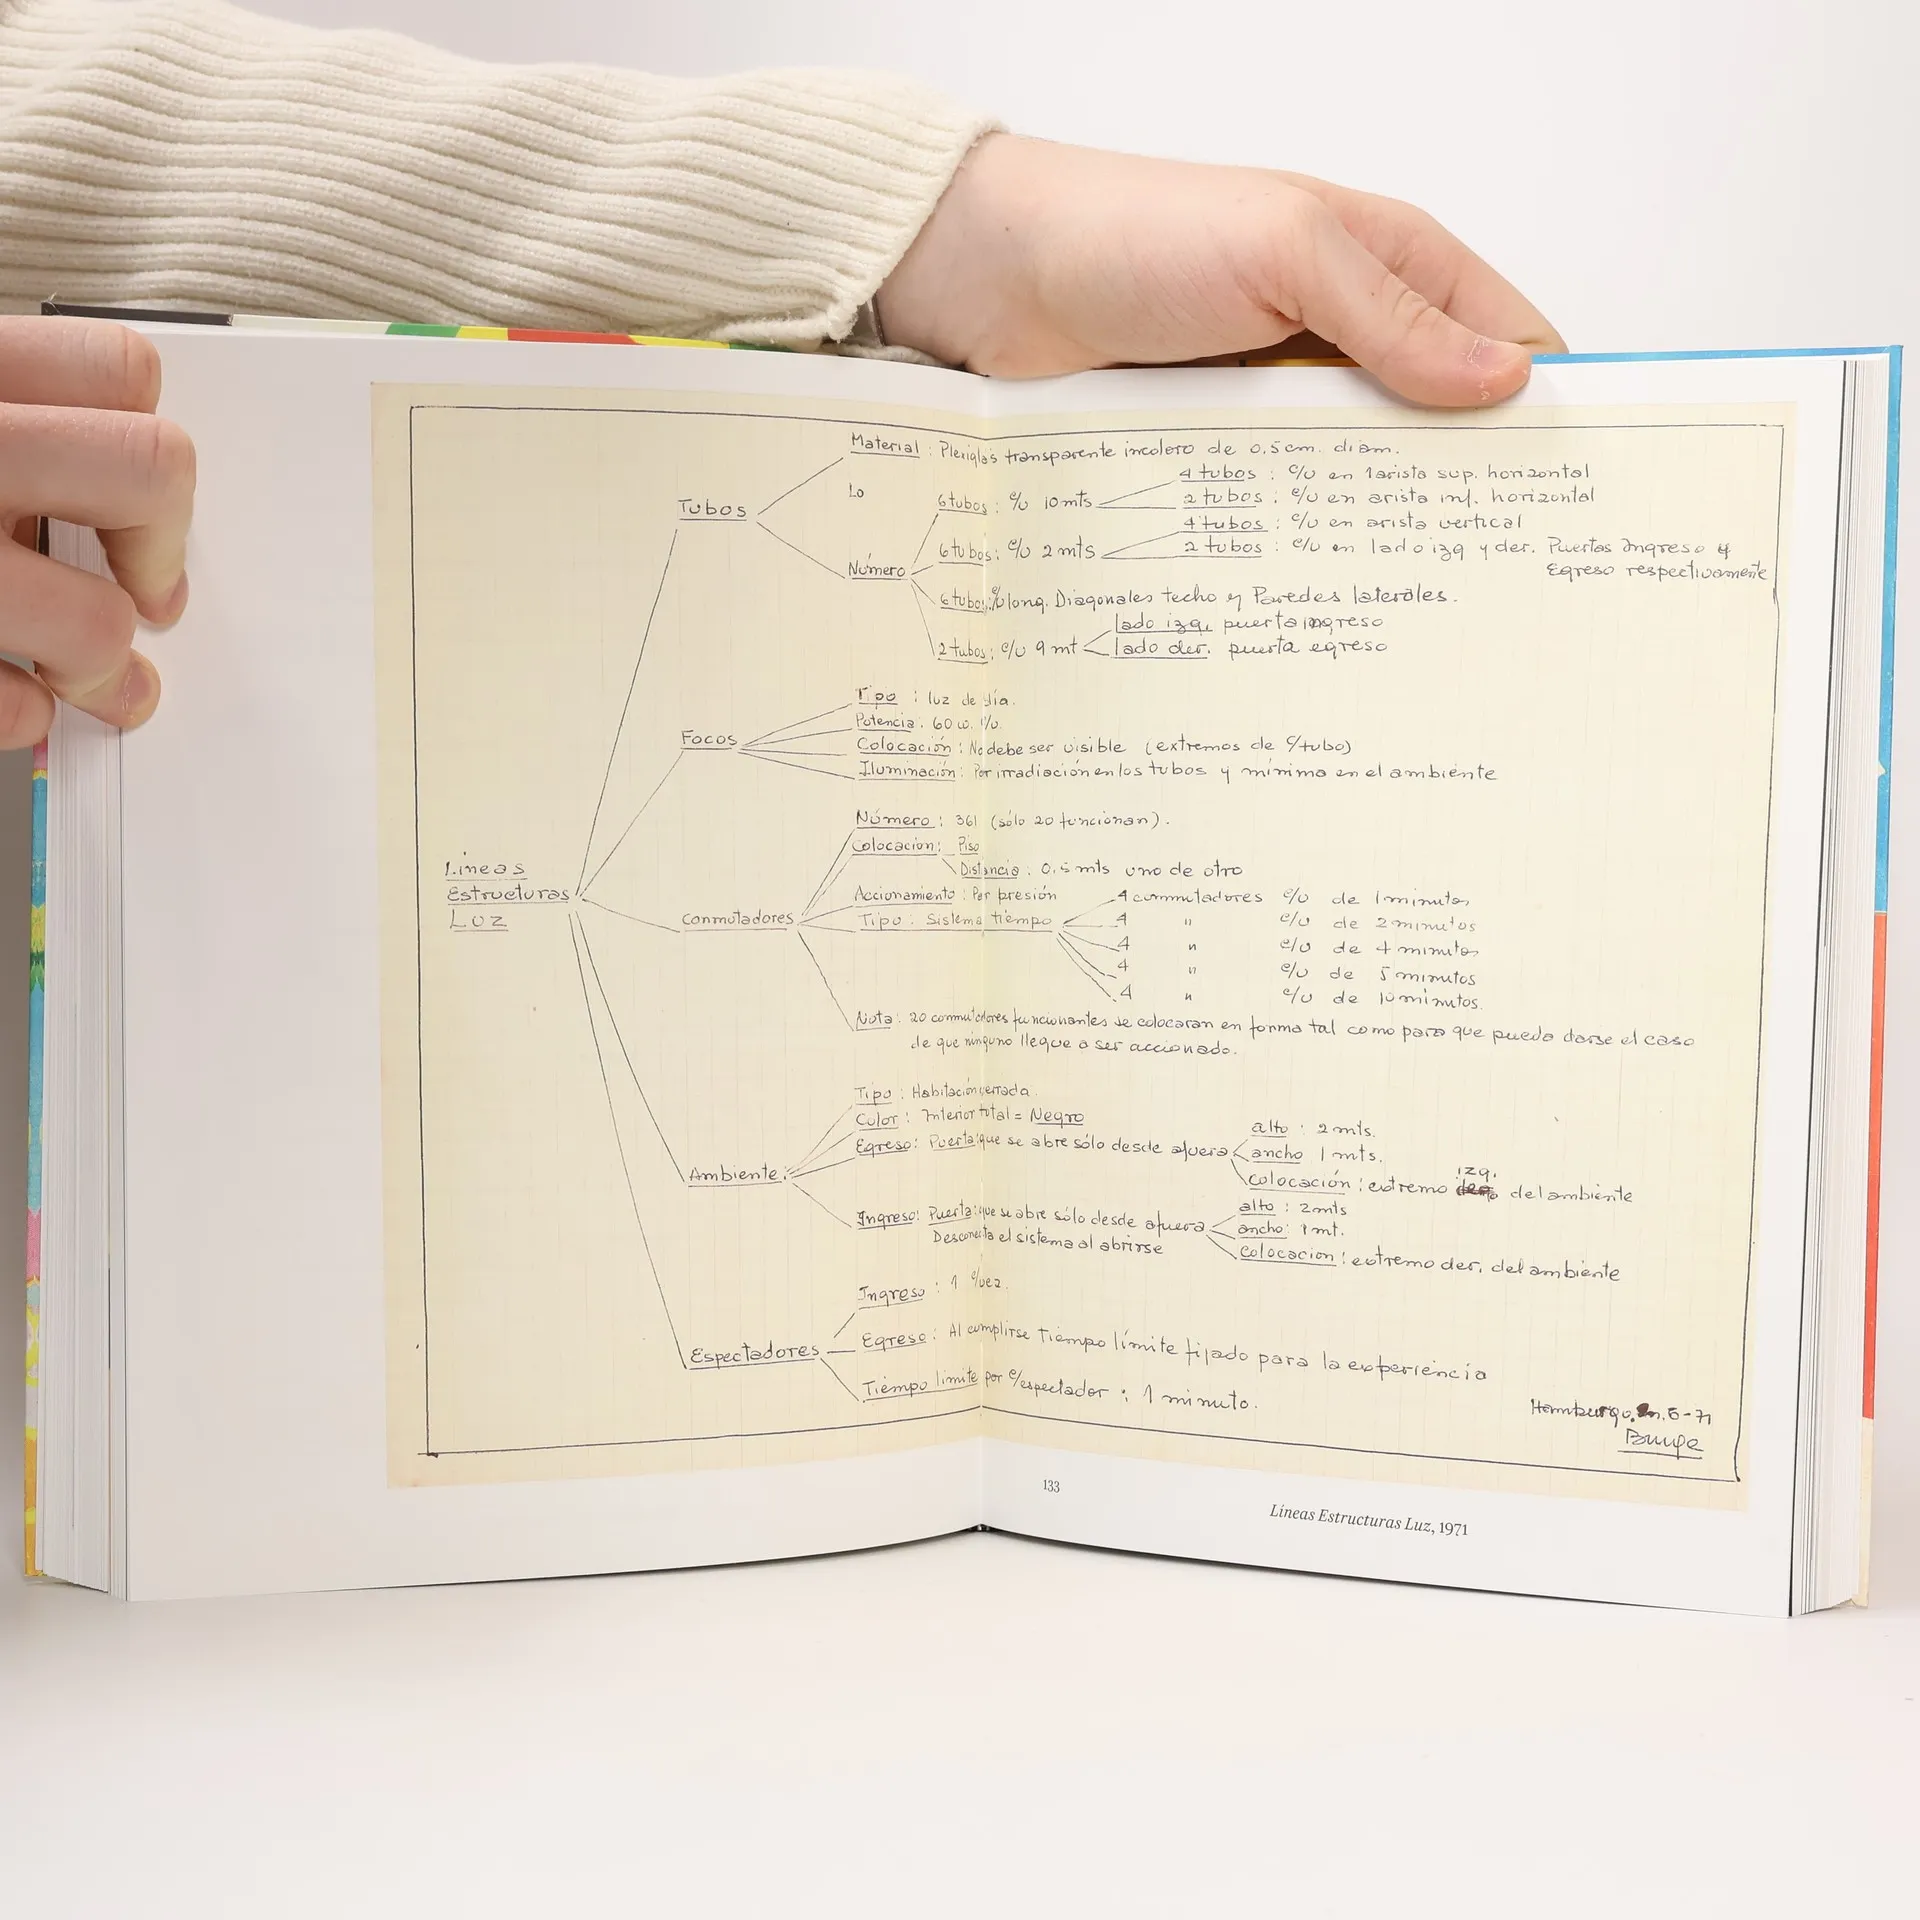 Material : Plexiglás transparente incoloro de 0.5 cm. diam.
4 tubos : c/u en 1 arista sup. horizontal
Lo
6 tubos : c/u 10 mts
2 tubos : c/u en arista inf. horizontal
Tubos
4 tubos : c/u en arista vertical
6 tubos : c/u 2 mts
2 tubos : c/u en lado izq y der. Puertas Ingreso y
Egreso respectivamente
Número
6 tubos: c/u long. Diagonales techo y Paredes laterales.
lado izq. puerta ingreso
2 tubos: c/u 9 mt
lado der. puerta egreso
Tipo : luz de día.
Potencia : 60 w. c/u.
Focos
Colocación : No debe ser visible (extremos de c/tubo)
Iluminación : Por irradiación en los tubos y mínima en el ambiente
Número : 361 (sólo 20 funcionan).
Colocación: Piso
Distancia : 0.5 mts uno de otro
Líneas
Estructuras
Luz
Accionamiento : Por presión
4 conmutadores c/u de 1 minuto
Conmutadores
Tipo : Sistema tiempo
4 " c/u de 2 minutos
4 " c/u de 4 minutos
4 " c/u de 5 minutos
4 " c/u de 10 minutos.
Nota : 20 conmutadores funcionantes se colocaran en forma tal como para que pueda darse el caso
de que ninguno llegue a ser accionado.
Tipo : Habitación cerrada
Color : Interior total = Negro
alto : 2 mts.
Egreso : Puerta: que se abre sólo desde afuera
ancho 1 mts.
Ambiente :
izq.
Colocación : extremo del ambiente
Ingreso: Puerta: que se abre sólo desde afuera
Desconecta el sistema al abrirse
alto : 2 mts
ancho: 1 mt.
Colocacion : extremo der. del ambiente
Ingreso : 1 c/vez.
Egreso : Al cumplirse Tiempo límite fijado para la experiencia
Espectadores
Tiempo limite por c/espectador : 1 minuto.
Hamburgo. 6-71
133
Líneas Estructuras Luz, 1971